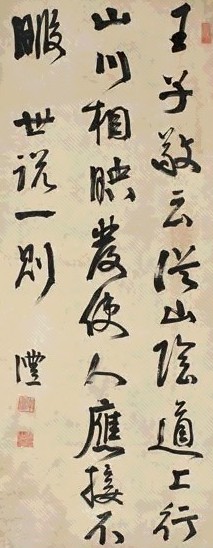 王子敬云從山陰道上行
山川相映發使人應接不
暇 世說一則 澧